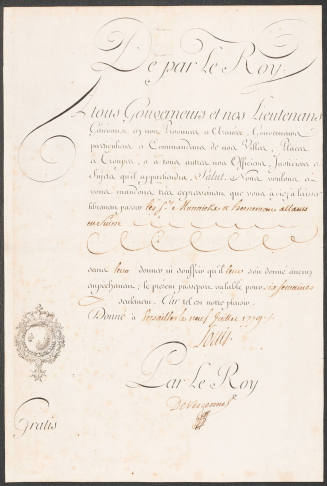 De par Le Roy.
A tous Gouverneurs et nos Lieutenans
Généraux en nos Provinces et Armées, Gouverneurs
particuliers et Commandans de nos Villes, Places
et Troupes, et à tous autres nos Officiers, Justiciers et
Sujets qu'il appartiendra, Salut. Nous voulons et
vous mandons très expressément que vous ayez à laisser
librement passer les Srs. et allants
en Suisse
sans leur donner ni souffrir qu'il leur soit donné aucun
empêchement; le présent passeport valable pour six semaines
seulement. Car tel est notre plaisir.
Donné à Versailles le neuf Juillet 1779
Louis
Par Le Roy
De Vergennes
Gratis